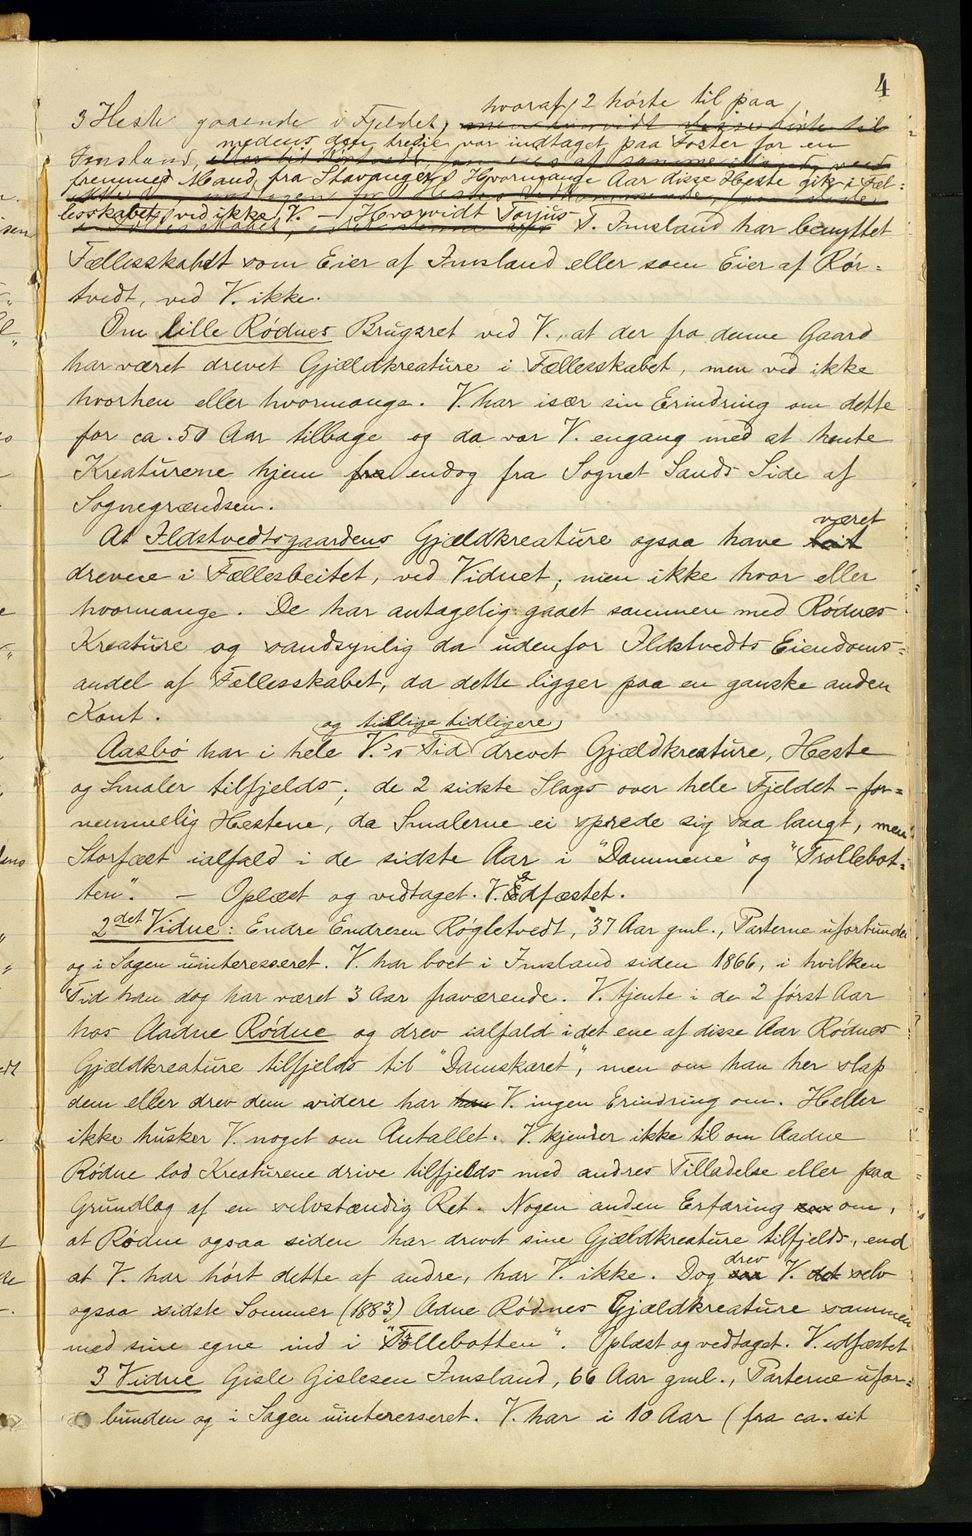 4
hvoraf 2 hørte til paa
3 Heste gaaende i Fjeldet,
medens den tredie var indtaget paa Foster for en
Imsland,
fremmed Mand fra Stavanger. Hvormange Aar disse Heste gik i Fæl-
lesskabet, ved ikke V. - Hvorvidt Torjus
T. Imsland har benyttet
Fællesskabet som Eier af Imsland eller som Eier af Rør-
tvedt, ved V. ikke.
Om lille Rødnes Brugsret ved V., at der fra denne Gaard
har været drevet Gjældkreature i Fællesskabet, men ved ikke
hvorhen eller hvormange. V. har især sin Erindring om dette
for ca. 50 Aar tilbage og da var V. engang med at hente
Kreaturene hjem fra endog fra Sognet Sands Side af
Sognegrændsen.
været
At Ilstvedtsgaardens Gjældkreature ogsaa have
drevne i Fællesbeitet, ved Vidnet, men ikke hvor eller
hvormange. De har antagelig gaaet sammen med Rødnes
Kreature og sandsynlig da udenfor Ilstvedts Eiendoms-
andel af Fællesskabet, da dette ligger paa en ganske anden
Kant.
og tillige tidligere
Aasbø har i hele V.'s Tid drevet Gjældkreature, Heste
og Smaler tilfjelds; de 2 sidste Slags over hele Fjeldet - for-
nemmelig Hestene, da Smalerne ei sprede sig saa langt, men
Storfæet ialfald i de sidste Aar i "Dammene" og "Trollebot-
ten". - Oplæst og vedtaget. V. Edfæstet.
2det Vidne: Endre Endresen Røgletvedt, 37 Aar gml., Parterne uforbunden
og i Sagen uinteresseret. V. har boet i Imsland siden 1866, i hvilken
Tid han dog har været 3 Aar fraværende. V. tjente i de 2 først Aar
hos Aadne Rødne og drev ialfald i det ene af disse Aar Rødnes
Gjældkreature tilfjelds til "Damskaret", men om han her slap
dem eller drev dem videre har han V. ingen Erindring om. Heller
ikke husker V. noget om Antallet. V. kjender ikke til om Aadne
Rødne lod Kreaturene drive tilfjelds med andres Tilladelse eller paa
Grundlag af en selvstændig Ret. Nogen anden Erfaring om,
at Rødne ogsaa siden har drevet sine Gjældkreature tilfjelds, end
drev
at V. har hørt dette af andre, har V. ikke. Dog V. det selv
ogsaa sidste Sommer (1883) Adne Rødnes Gjældkreature sammen
med sine egne ind i "Tollebotten". Oplæst og vedtaget. V. edfæstet
3 Vidne Gisle Gislesen Imsland, 66 Aar gml., Parterne ufor-
bunden og i Sagen uinteresseret. V. har i 10 Aar (fra ca. sit